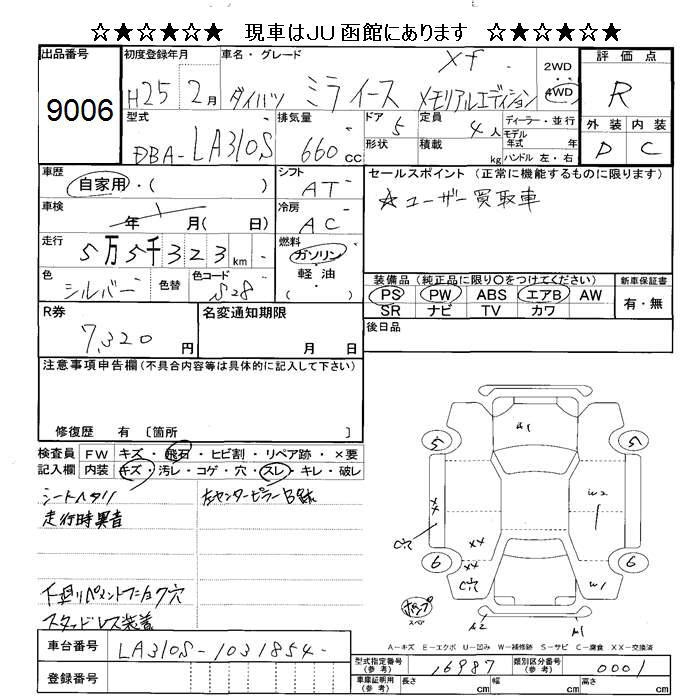 ☆★☆★☆★ 現車はJU函館にあります ☆★☆★☆★
出品番号 初度登録年月 車名・グレード 評価点
9006 H25 2月 ダイハツ ミライース Xf メモリアルエディション 2WD 4WD R
型式 排気量 ドア 定員 ディーラー・並行 外装 内装
DBA-LA310S 660cc 5 4人 モデル
形状 積載 kg 年式 年 ハンドル 左・右 D C
車歴 シフト セールスポイント (正常に機能するものに限ります)
自家用・( ) AT ☆ユーザー買取車
車検 冷房
年 月( 日) AC
走行 燃料
5万5千323km ガソリン
色 色替 色コード 軽油 装備品 (純正品に限り〇をつけてください) 新車保証書
シルバー S28 ( ) PS PW ABS エアB AW 有・無
SR ナビ TV カワ
R券 名変通知期限 後日品
7,320円 月 日
注意事項申告欄(不具合内容等は具体的に記入して下さい)
修復歴 有 〔箇所 〕
検査員 FW キズ・飛石・ヒビ割・リペア跡・×要
記入欄 内装 キズ・汚レ・コゲ・穴・スレ・キレ・破レ
シートヘタリ 左センターピラー
走行時異音
スタッドレス装着
A1
5 5
W2
XX
C穴
XX
6 6
C穴 W1
スペア
A2 A1
A-キズ E-エクボ U-凹み W-補修跡 S-サビ C-腐食 XX-交換済
車台番号 LA310S-1031854 型式指定番号(参考) 16987 類別区分番号(参考) 0001
登録番号 車庫証明用(参考) 長さ cm 幅 cm 高さ cm